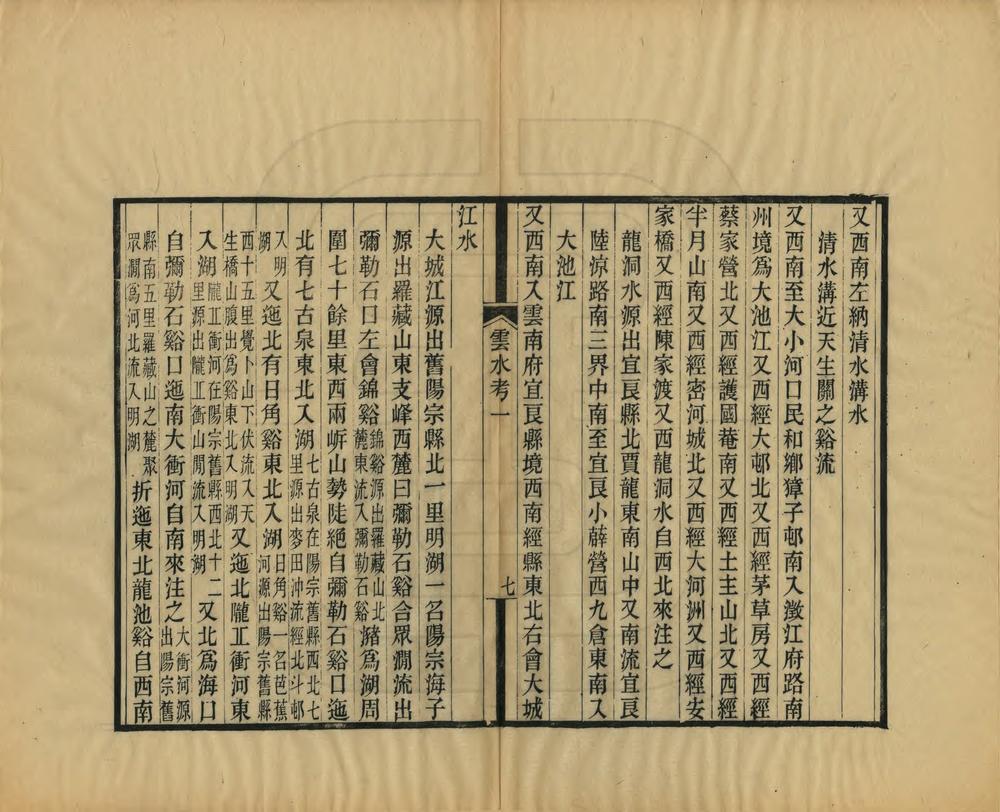 又西南左納清水溝水
清水溝近天生關之谿流
又西南至大小河口民和鄉獐子邨南入澂江府路南
州境爲大池江又西經大邨北又西經茅草房又西經
蔡家營北又西經護國菴南又西經土主山北又西經
半月山南又西經密河城北又西經大河洲又西經安
家橋又西經陳家渡又西龍洞水自西北來注之
龍洞水源出宜良縣北賈龍東南山中又南流宜良
陸涼路南三界中南至宜良小薜營西九倉東南入
大池江
又西南入雲南府宜良縣境西南經縣東北右會大城
雲水考一
七
江水
大城江源出舊陽宗縣北一里明湖一名陽宗海子
源出羅藏山東支峰西麓曰彌勒石谿合眾澗流出
彌勒石口左會錦谿
錦谿源出羅藏山北
麓東流入彌勒石谿
瀦爲湖周
圍七十餘里東西兩岍山勢陡絕自彌勒石谿口迤
北有七古泉東北入湖
七古泉在陽宗舊縣西北七
里源出麥田沖流經北斗邨
入明
湖
又迤北有日角谿東北入湖
日角谿一名芭蕉
河源出陽宗舊縣
西十五里覺卜山下伏流入天
生橋山腹出爲谿東北入明湖
又迤北隴㐀衝河東
入湖
隴㐀衝河在陽宗舊縣西北十二
里源出隴㐀衝山閒流入明湖
又北爲海口
自彌勒石谿口迤南大衝河自南來注之
大衝河源
出陽宗舊
縣南五里羅藏山之麓聚
眾澗爲河北流入明湖
折迤東北龍池谿自西南